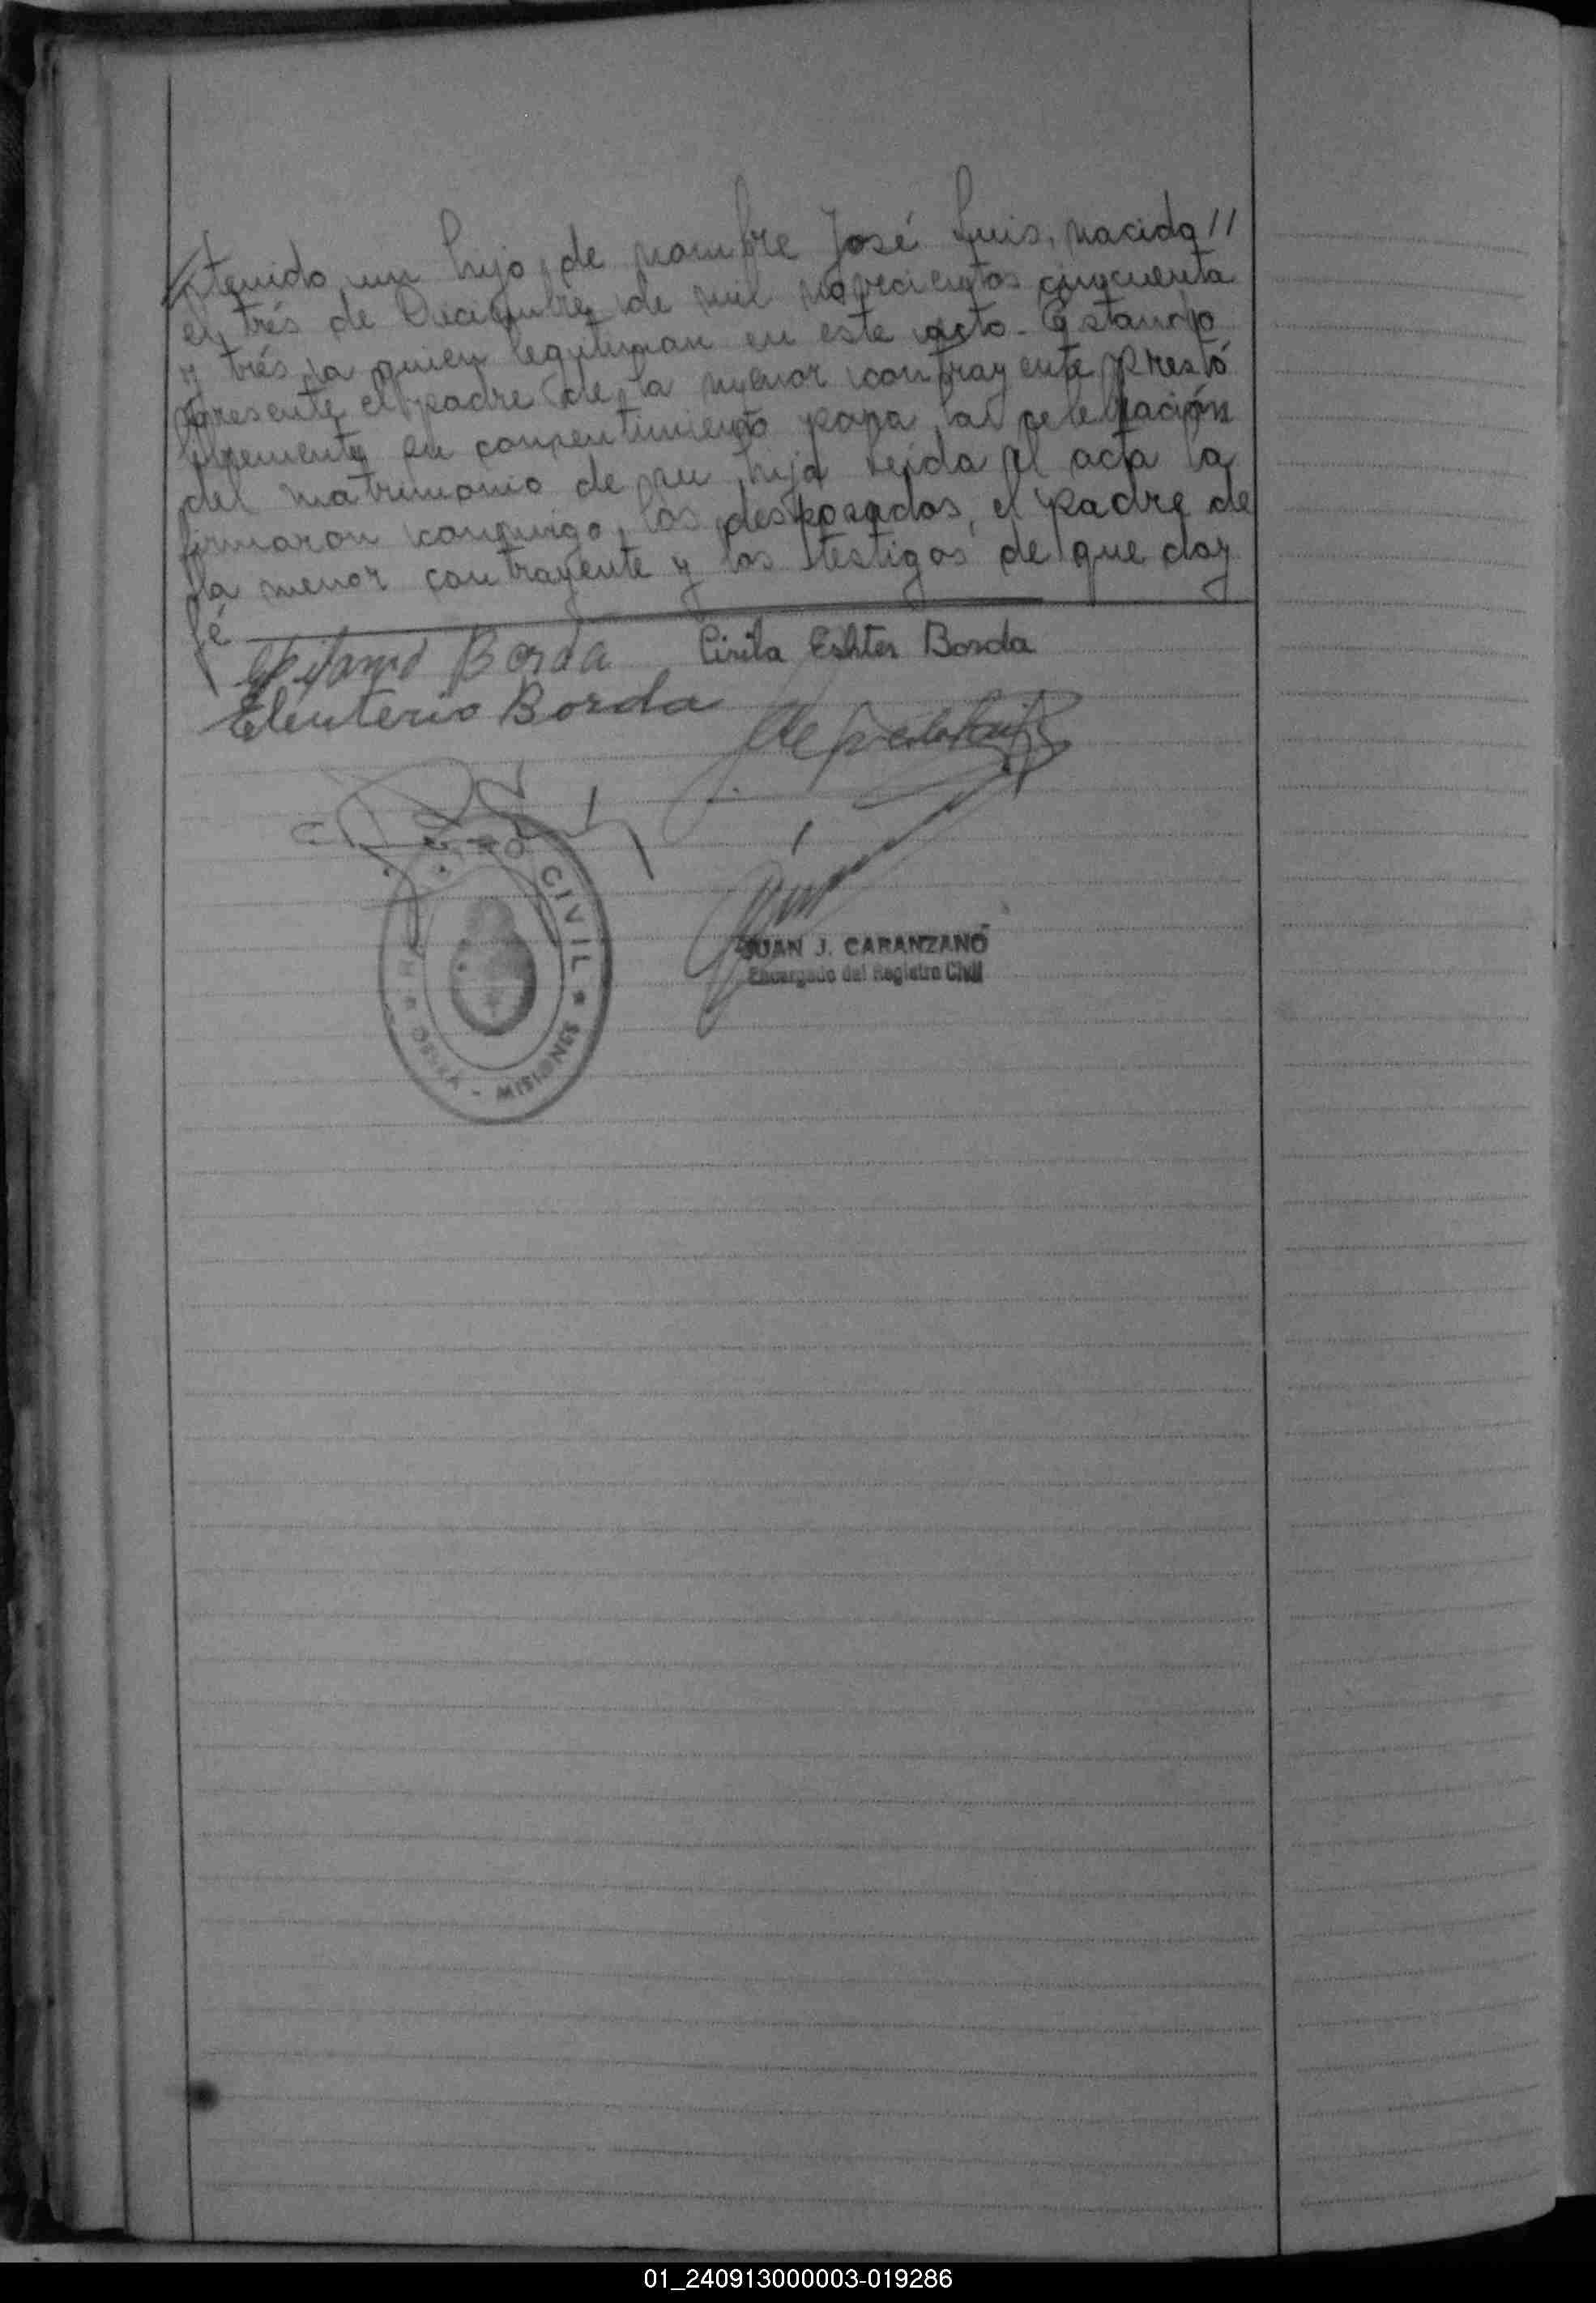 tenido un hijo, de nombre José Luis, nacido //
en trés de Diciembre de mil novecientos cincuenta
y trés, a quien legitiman en este acto. Estando
presente el padre de la menor contrayente prestó
su consentimiento para la celebración
del matrimonio de su hija. Leida el acta la
firmaron conmigo, los desposados, el padre de
la menor contrayente y los testigos de que doy
fé
Borda Cirila Eshter Borda
Eleuterio Borda
CIVIL * MISIONES -
JUAN J. CARANZANO
Encargado del Registro Civil
01_240913000003-019286